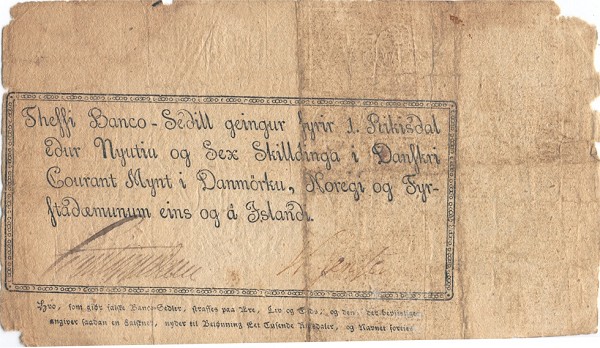 Thessi Banco-Sedill geingur fyrir 1. Rikisdal
edur Nyutiu og Sex Skilldinga i Danskri
Courant Mynt i Danmörku, Noregi og Fyr-
stadæmunum eins og â Islandi.
Hvo, som giør falske Banco-Sedler, straffes paa Ære, Liv og Gods, og den, det beviislig
angiver saadan en Falskner, nyder til Belønning Eet Tusende Rigsdaler, og Navnet forties